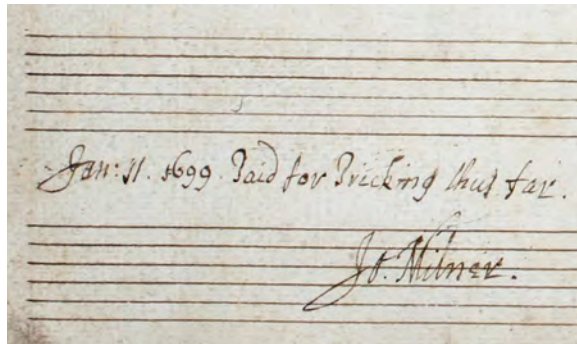 Jan: 11. 1699. Paid for Pricking thus far.
Jo. Milner.